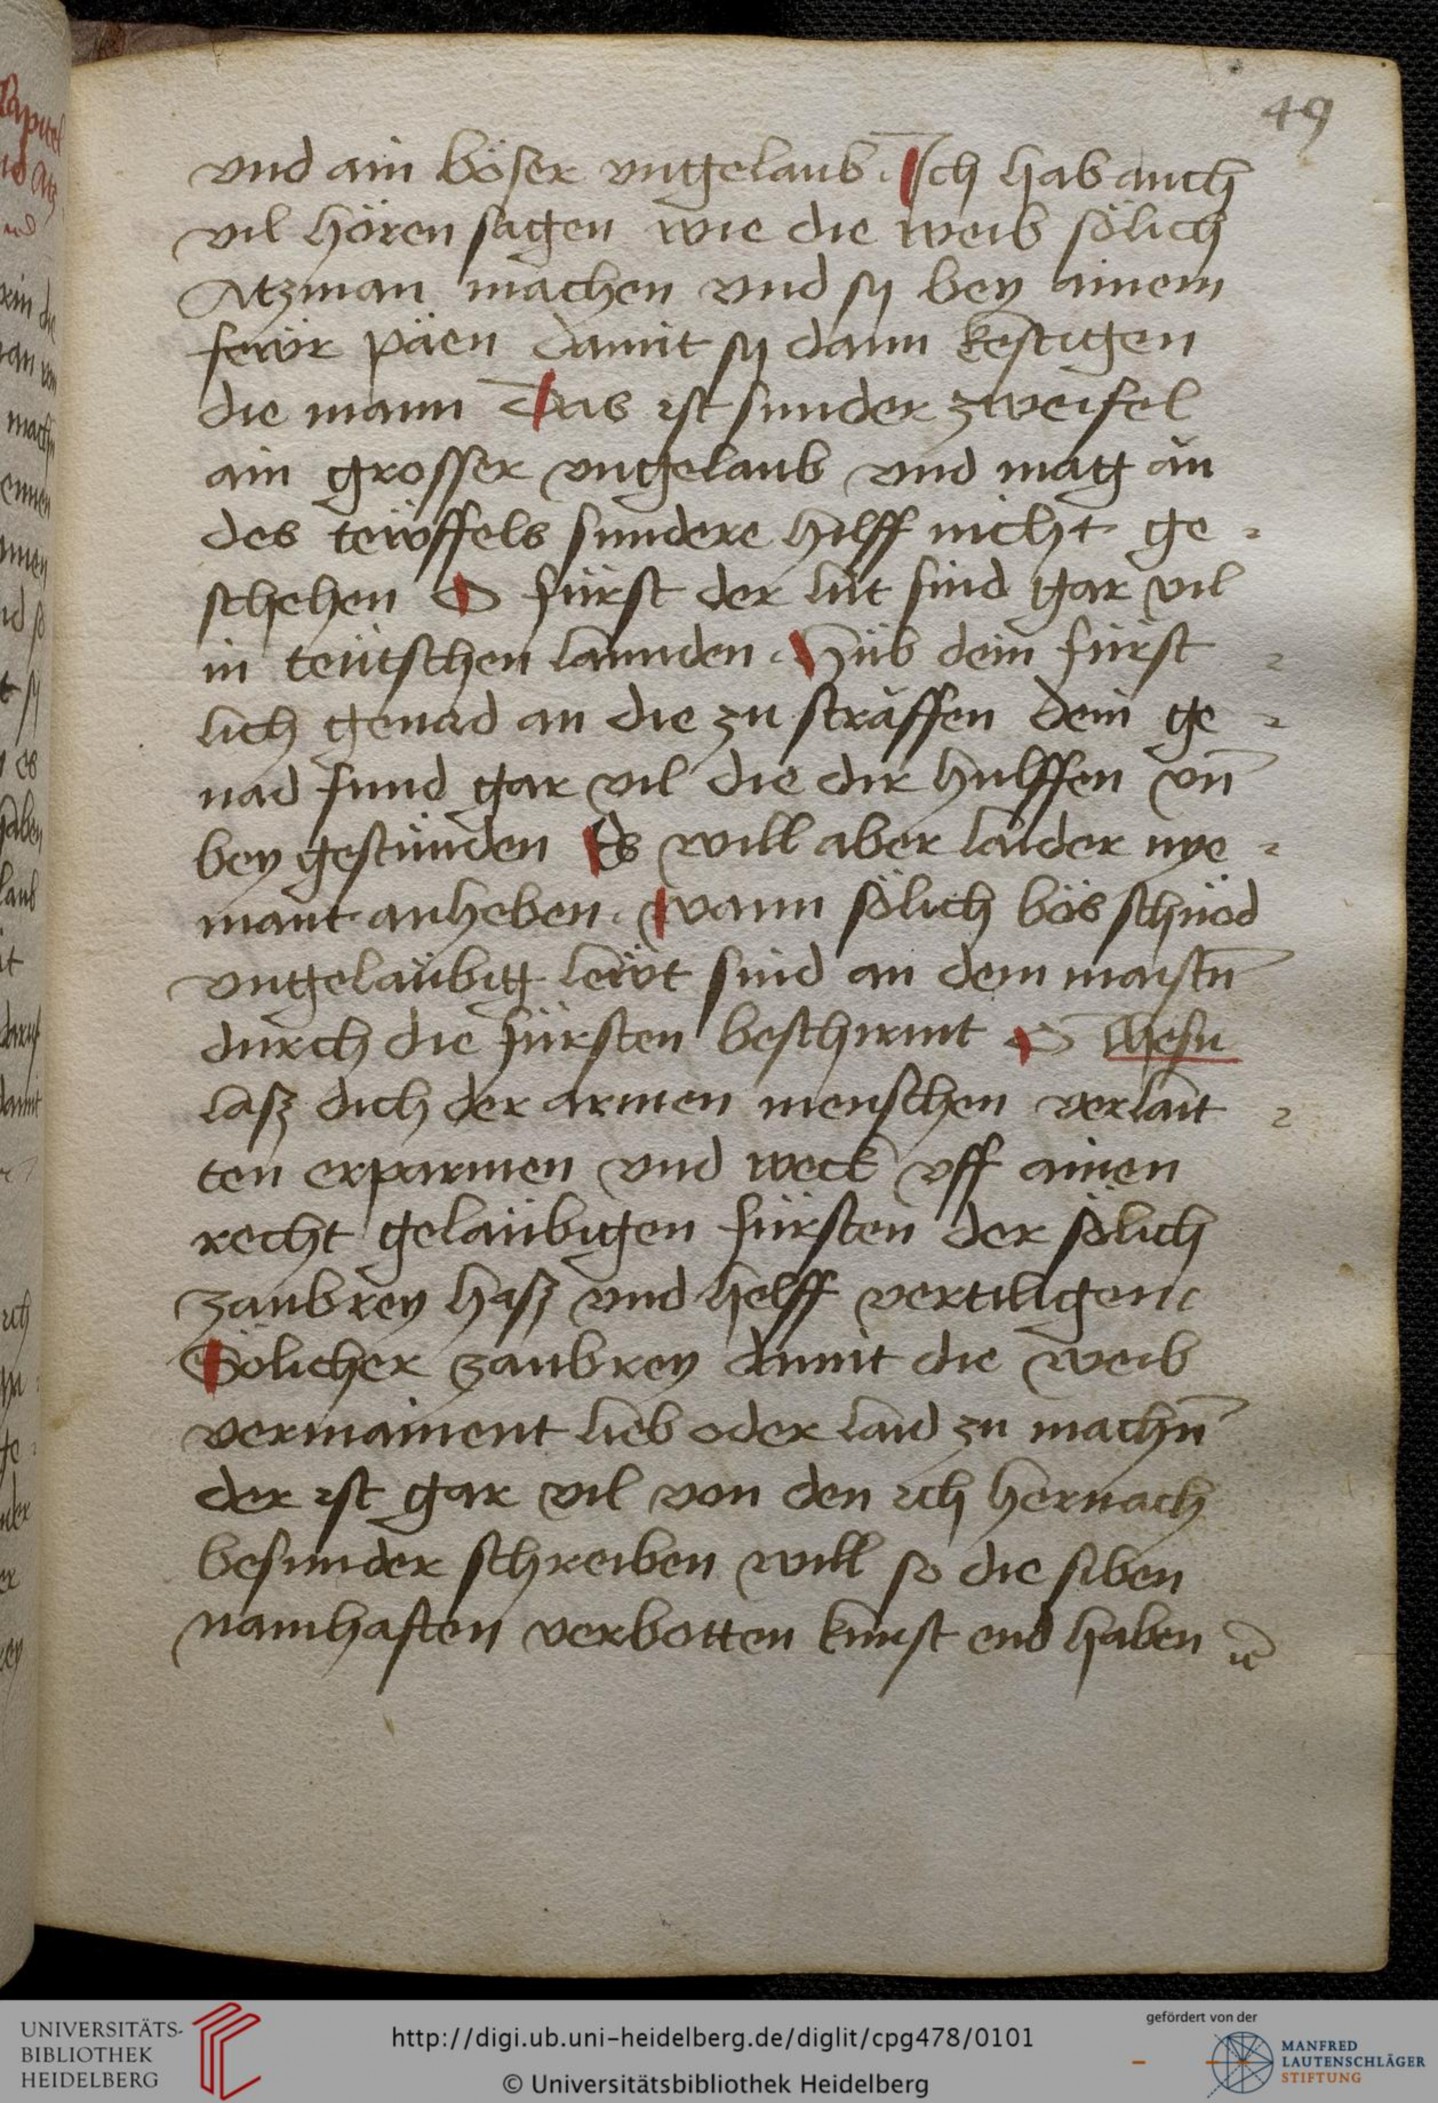 49
vnd ain böser vngelaub. Ich hab auch
vil hören sagen wie die weib sölich
Atzman machen vnd sy bey ainem
fewr päen damit sy dann kestigen
die mann Das ist sunder zweifel
ain grosser vngelaub vnd mag än
des tewffels sundere hilff nicht ge-
schehen O fürst der lüt sind gar vil
in teütschen lannden. Hüb dein fürst-
lich genad an die zu sträffen dein ge-
nad fund gar vil die dir hulffen vn̄
bey gestünden Es will aber laider nye-
mant anheben. wann sölich bös schnöd
vngeläubig lewt sind an dem maistn̄
durch die fürsten beschirmt O Jhesu
lasz dich der armen menschen verlait-
ten erparmen vnd weck vff ainen
recht geläubigen fürsten der sölich
zaubrey hasz vnd helff vertilligen
Sölicher zaubrey damit die weib
vermainent lieb oder laid zu machn̄
der ist gar vil von den ich hernach
besunder schreiben will so die siben
namhaften verbotten kunst end haben
UNIVERSITÄTS-
BIBLIOTHEK
HEIDELBERG
http://digi.ub.uni-heidelberg.de/diglit/cpg478/0101
© Universitätsbibliothek Heidelberg
gefördert von der
MANFRED
LAUTENSCHLÄGER
STIFTUNG